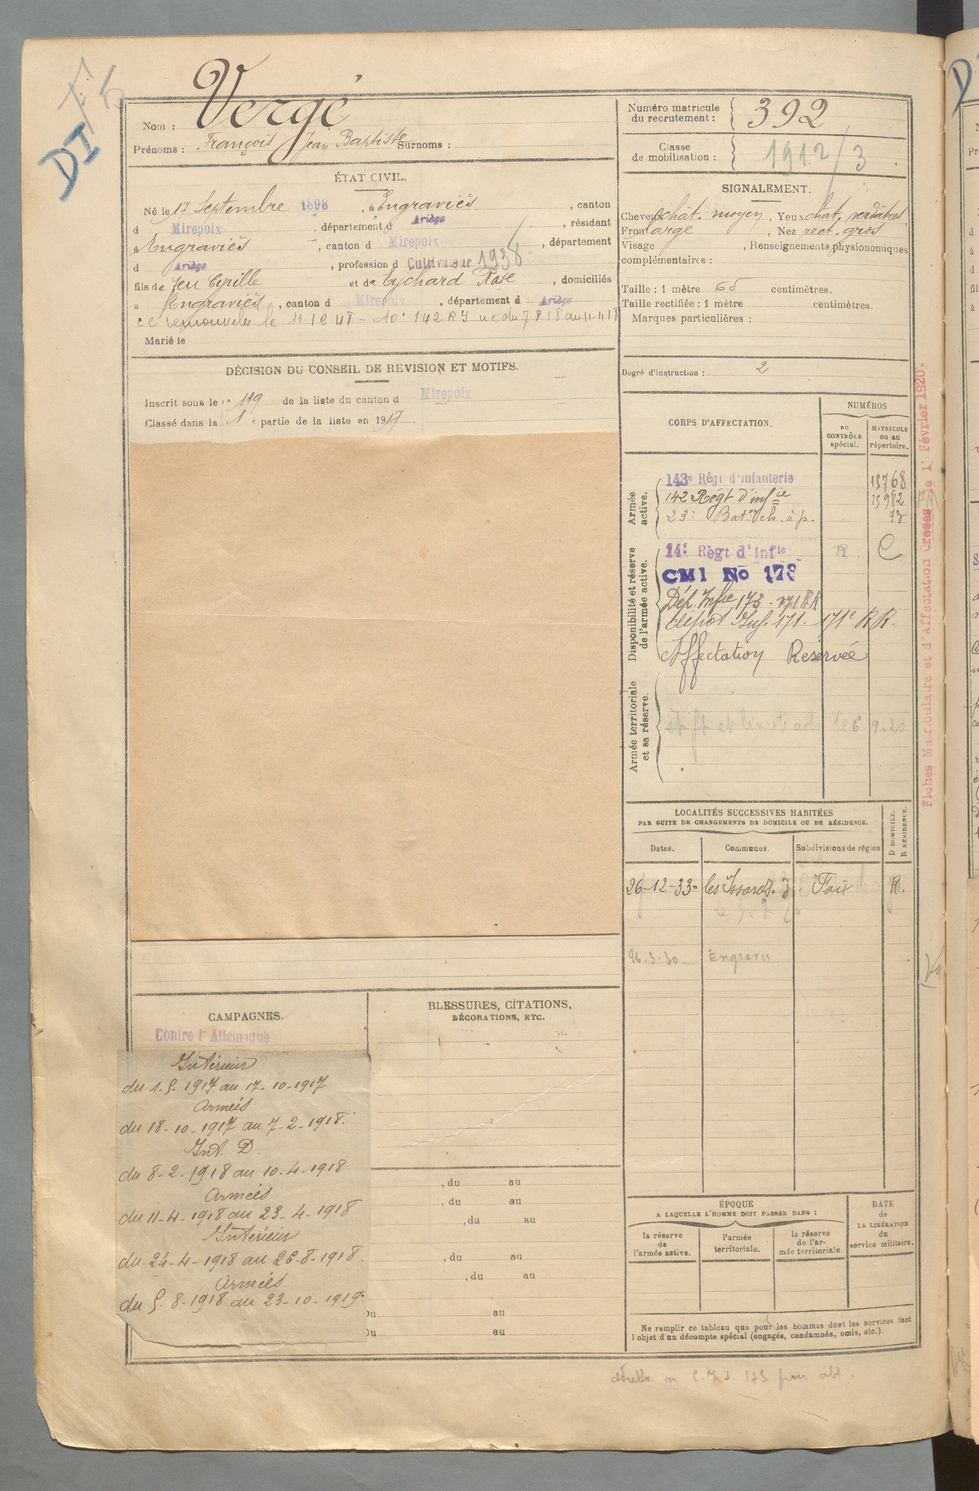 DI
Vergé
Nom :
Prénoms : François Jean Baptiste Surnoms :
ÉTAT CIVIL.
Né le 17 Septembre 1898, à Engraviès, canton
d Mirepoix, département d Ariège, résidant
à Engraviès, canton d Mirepoix, département
d Ariège, profession d Cultivateur 1938
fils de feu Cyrille et de Eychard Rose, domiciliés
à Engraviès, canton d Mirepoix, département d Ariège
Marié le
DÉCISION DU CONSEIL DE REVISION ET MOTIFS.
Inscrit sous le n° 119 de la liste du canton d Mirepoix
Classé dans la 1e partie de la liste en 1917
CAMPAGNES.
Contre l'Allemagne
Intérieur
du 1.5.1917 au 17-10-1917
Armées
du 18-10-1917 au 7-2-1918.
Int. D.
du 8-2-1918 au 10-4-1918
Armées
du 11-4-1918 au 23-4-1918
Intérieur
du 24-4-1918 au 26-8-1918.
Armées
du 5-8-1918 au 23-10-1919.
BLESSURES, CITATIONS,
DÉCORATIONS, ETC.
, du au
, du au
, du au
, du au
, du au
Du au
Du au
Numéro matricule
du recrutement : 392
Classe
de mobilisation : 1912/3
SIGNALEMENT.
Cheveux chât. moyen, Yeux chât. verdâtres
Front large, Nez rect. gros
Visage , Renseignements physionomiques
complémentaires :
Taille : 1 mètre 65 centimètres.
Taille rectifiée : 1 mètre centimètres.
Marques particulières :
Degré d'instruction : 2
CORPS D'AFFECTATION.
NUMÉROS
AU CONTRÔLE spécial.
MATRICULE OU AU répertoire.
Armée active.
143e Régt d'infanterie 13768
142 Régt d'infie 15982
23e Bat. Ch. à p. 73
Disponibilité et réserve de l'armée active.
14e Régt d'Infie R C
CMI No 173
Dép. Infie 173
dépôt Inf. 171. 171e R.R.
Affectation Réservée
Armée territoriale et sa réserve.
Fiches Matriculaire et d'Affectation Créées le 1er Février 1920.
LOCALITÉS SUCCESSIVES HABITÉES
PAR SUITE DE CHANGEMENTS DE DOMICILE OU DE RÉSIDENCE.
Dates. Communes. Subdivisions de région D DOMICILE. R RÉSIDENCE.
26-12-33 les Issards Foix R.
26.3.30 Engraviès
ÉPOQUE
A LAQUELLE L'HOMME DOIT PASSER DANS :
la réserve de l'armée active.
l'armée territoriale.
la réserve de l'armée territoriale.
DATE de LA LIBÉRATION du service militaire.
Ne remplir ce tableau que pour les hommes dont les services font
l'objet d'un décompte spécial (engagés, condamnés, omis, etc.).